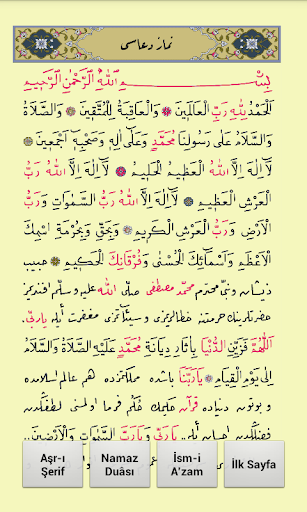 نماز دعاسى
بِسْمِ اللّٰهِ الرَّحْمٰنِ الرَّحِيمِ
اَلْحَمْدُ لِلّٰهِ رَبِّ الْعَالَمِينَ ۞ وَالْعَاقِبَةُ لِلْمُتَّقِينَ ۞ وَالصَّلَاةُ
وَالسَّلَامُ عَلٰى رَسُولِنَا مُحَمَّدٍ وَعَلٰٓى اٰلِهِ وَصَحْبِهِٓ اَجْمَعِينَ ۞
لَٓا اِلٰهَ اِلَّا اللّٰهُ الْعَظِيمُ الْحَلِيمُ ۞ لَٓا اِلٰهَ اِلَّا اللّٰهُ رَبُّ
الْعَرْشِ الْعَظِيمِ ۞ لَٓا اِلٰهَ اِلَّا اللّٰهُ رَبُّ السَّمٰوَاتِ وَرَبُّ
الْاَرْضِ وَرَبُّ الْعَرْشِ الْكَرِيمِ ۞ وَبِحَقِّ وَبِحُرْمَةِ اسْمِكَ
الْاَعْظَمِ وَاَسْمَٓائِكَ الْحُسْنٰى وَفُرْقَانِكَ الْحَكِيمِ ۞ حبيب
ذيشان ونبئ محترم محمد مصطفى صلى الله عليه وسلم افنديمز
حضرتلرينك حرمتنه خطالريمزى وسيئاتمزى مغفرت ايله ياربى
اَللّٰهُمَّ فَزَيِّنِ الدُّنْيَا بِاٰثَارِ دِيَانَةِ مُحَمَّدٍ عَلَيْهِ الصَّلَاةُ وَالسَّلَامُ
اِلٰى يَوْمِ الْقِيَامِ ۞ يَارَبَّنَا باشده مملكتمزده هم عالم اسلامده
و بوتون دنياده قرآن
ياربى وَيَارَبَّ السَّمٰوَاتِ وَالْاَرَضِينَ
Aşr-ı Şerif
Namaz Duâsı
İsm-i A'zam
İlk Sayfa